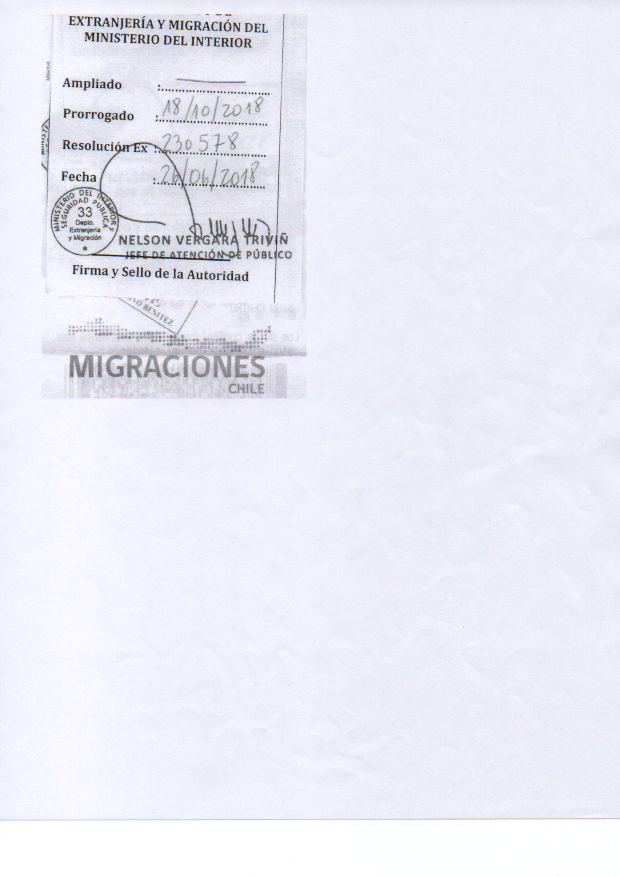 EXTRANJERÍA Y MIGRACIÓN DEL
MINISTERIO DEL INTERIOR
Ampliado :
Prorrogado : 18/10/2018
Resolución Ex : 230578
Fecha : 26/06/2018
MINISTERIO DEL INTERIOR Y SEGURIDAD PÚBLICA
33
Depto.
Extranjería
y Migración
NELSON VERGARA TRIVIÑ
JEFE DE ATENCIÓN DE PÚBLICO
Firma y Sello de la Autoridad
BENITEZ
MIGRACIONES
CHILE